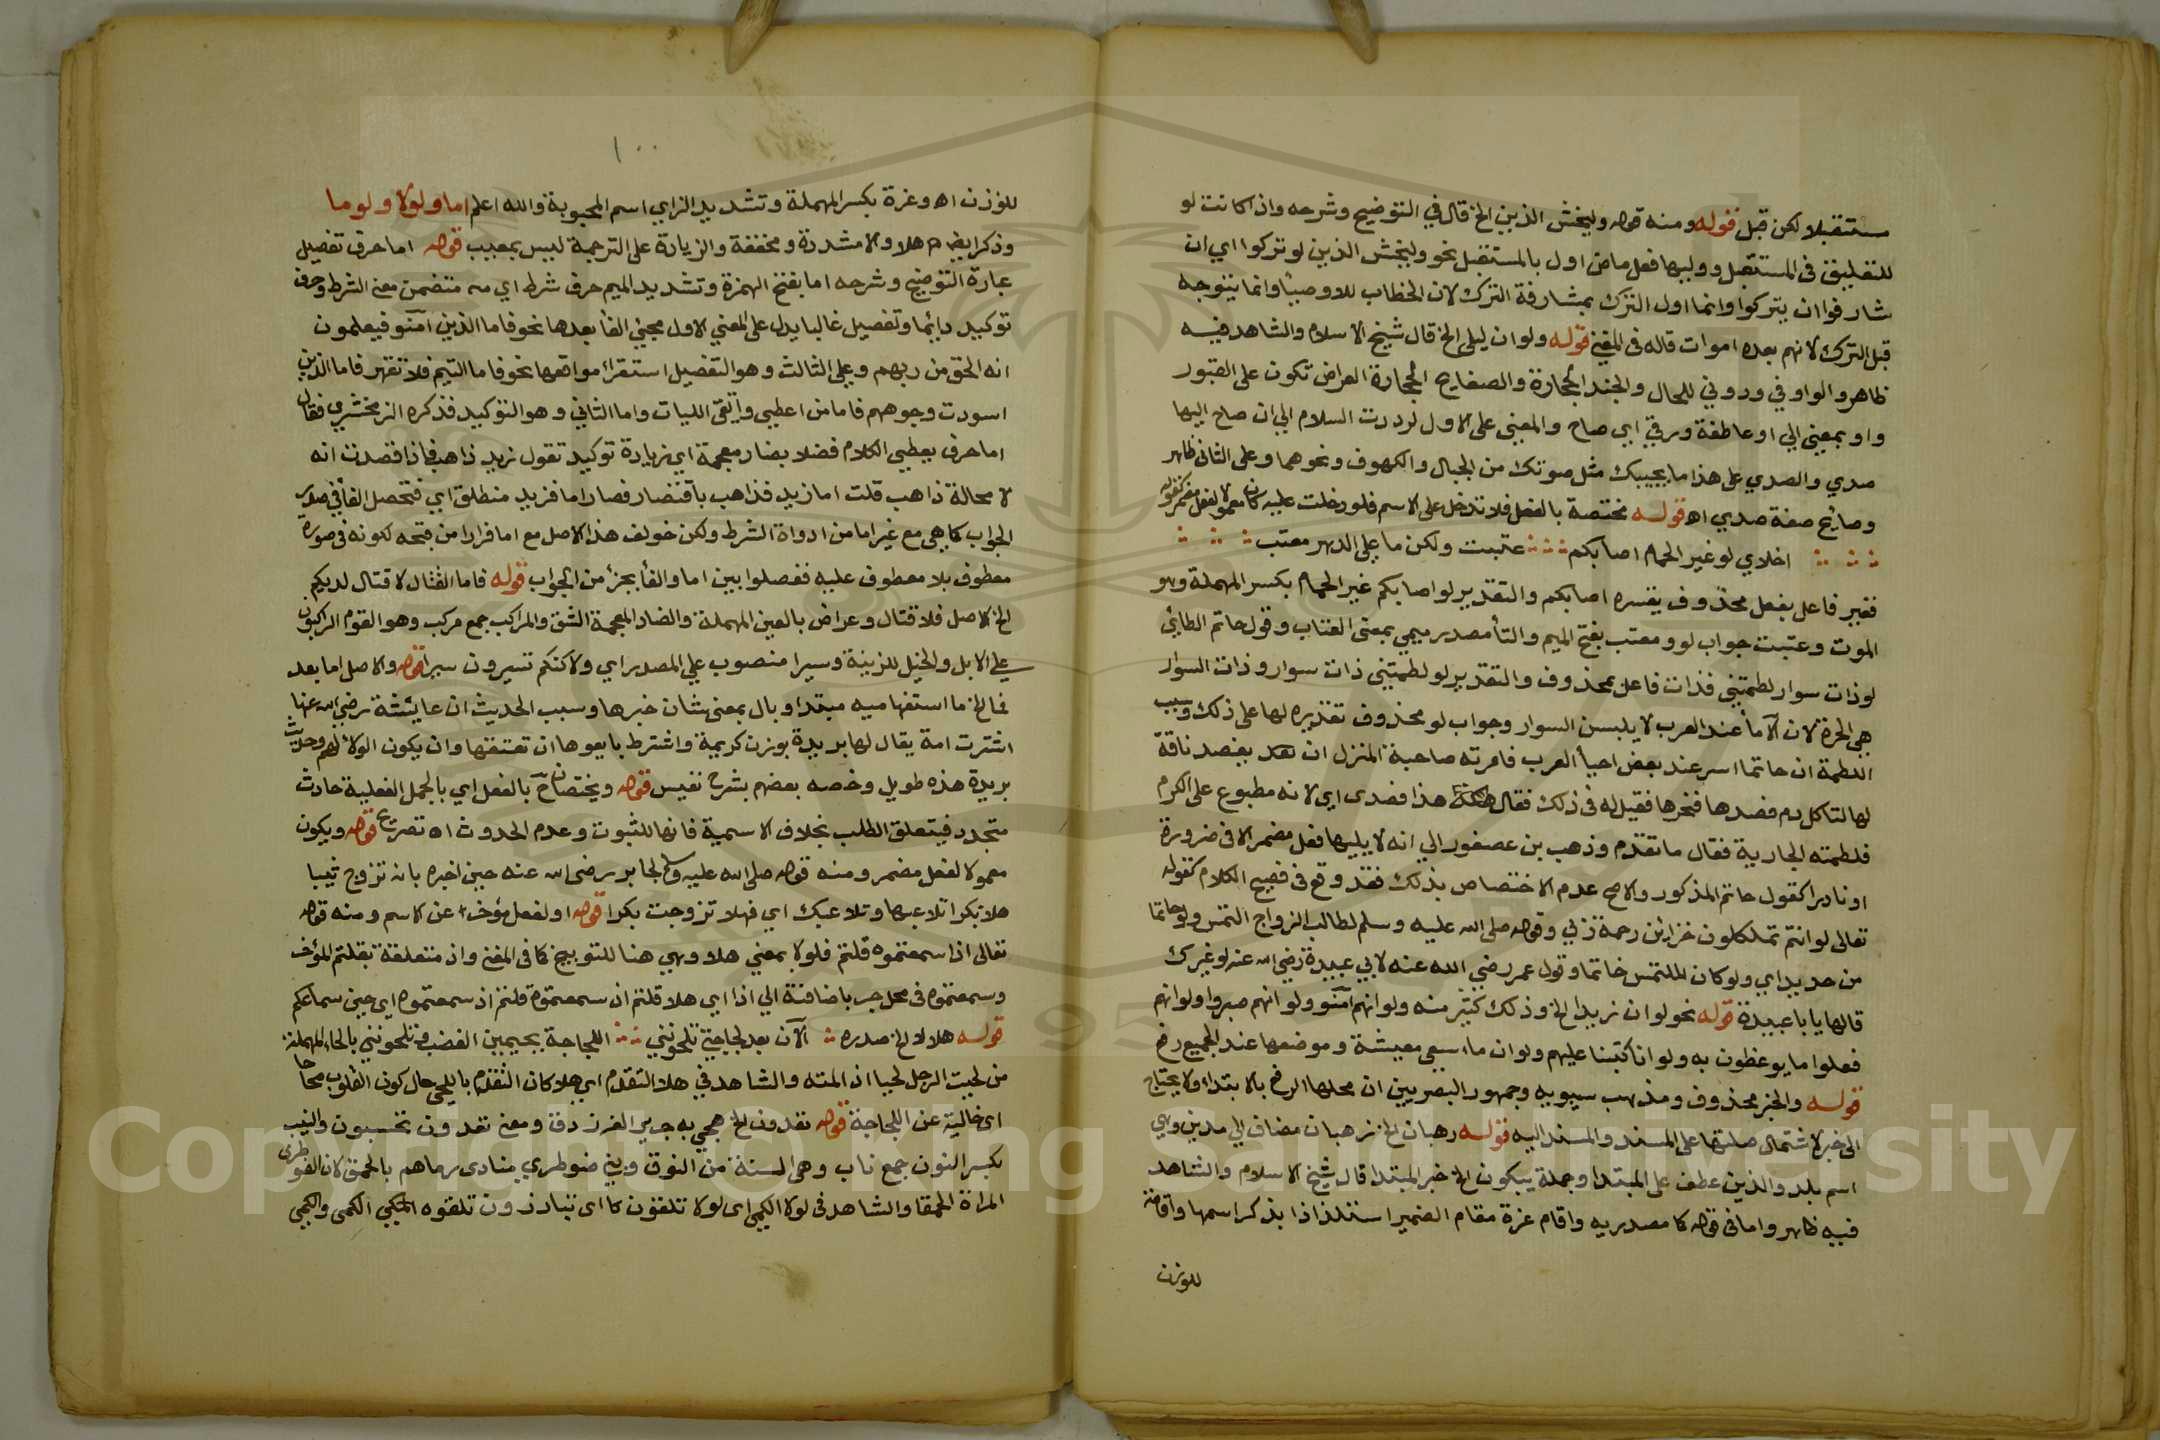 مستقبلا لكن قبل قوله ومنه قوله وليخش الذين الخ قال في التوضيح وشرحه واذا كانت لو
للتعليق في المستقبل ووليها فعل ماض اول بالمستقبل نحو وليخش الذين لو تركوا اي ان
شارفوا ان يتركوا وانما اول الترك بمشارفة الترك لان الخطاب للاوصياء وانما يتوجه
قبل الترك لانهم بعده اموات قاله في المغني قوله ولو ان ليلى الخ قال شيخ الاسلام والشاهد فيه
ظاهر والواو في ودوني للحال والجندل الحجارة والصفايح الحجارة العراض تكون على القبور
واو بمعنى الي او عاطفة وزقي اي صاح والمعنى على الاول لرددت السلام الي ان صاح اليها
صدي والصدي على هذا ما يجيبك مثل صوتك من الجبال والكهوف ونحوهما وعلى الثاني ظاهر
وصايح صفة صدي اه قوله مختصة بالفعل فلا تدخل على الاسم فلو دخلت عليه كان معمولا لفعل مضمر كقوله
اخلاي لو غير الحمام اصابكم عتبت ولكن ما على الدهر معتب
فغير فاعل بفعل محذوف يفسره اصابكم والتقدير لو اصابكم غير الحمام بكسر المهملة وهو
الموت وعتبت جواب لو ومعتب بفتح الميم والتاء مصدر ميمي بمعنى العتاب وقول حاتم الطائي
لو ذات سوار لطمتني فذات فاعل بمحذوف والتقدير لو لطمتني ذات سوار وذات السوار
هي الحرة لان الآماء عند العرب لا يلبسن السوار وجواب لو محذوف تقديره لها على ذلك وسبب
اللطمة ان حاتما اسر عند بعض احياء العرب فامرته صاحبة المنزل ان يفصد ناقة
لها لتاكل دم فصدها فنحرها فقيل له في ذلك فقال هكذا فصدى اي لانه مطبوع على الكرم
فلطمته الجارية فقال ما تقدم وذهب بن عصفور الي انه لا يليها فعل مضمر الا في ضرورة
او نادرا كقول حاتم المذكور والاصح عدم الاختصاص بذلك فقد وقع في فصيح الكلام كقوله
تعالى لو انتم تملكون خزائن رحمة ربي وقوله صلى الله عليه وسلم لطالب الزواج التمس ولو خاتما
من حديد اي ولو كان الملتمس خاتما وقول عمر رضي الله عنه لابي عبيدة رضي الله عنه لو غيرك
قالها يا با عبيدة قوله نحو لو ان زيدا الخ وذلك كثير منه ولو انهم آمنو ولو انهم صبروا ولو انهم
فعلوا ما يوعظون به ولو انا كتبنا عليهم ولو ان ما اسعى معيشة وموضعها عند الجميع رفع
قوله والخبر محذوف ومذهب سيبويه وجمهور البصريين ان محلها الرفع بالابتداء ولا يحتاج
الى خبر لاشتمال صلتها على المسند والمسند اليه قوله رهبان الخ رهبان مضاف الي مدين وهي
اسم بلد والذين عطف على المبتدا وجملة يبكون الخ خبر المبتدا قال شيخ الاسلام والشاهد
فيه ظاهر واما في قوله كما مصدريه واقام عزة مقام الضمير استلذاذا بذكر اسمها واقامة
للوزن
١٠٠
للوزن اه وعزة بكسر المهملة وتشديد الزاي اسم المحبوبة والله اعلم اما ولولا ولوما
وذكر ايضا هلا والا مشددة ومخففة والزيادة على الترجمة ليس بمعيب قوله اما حرف تفصيل
عبارة التوضيح وشرحه اما بفتح الهمزة وتشديد الميم حرف شرط اي متضمن معنى الشرط وحرف
توكيد دايما وتفصيل غالبا يدل على المعني الاول مجئ الفاء بعدها نحو فاما الذين آمنو فيعلمون
انه الحق من ربهم وعلى الثالث وهو التفصيل استقراء مواقعها نحو فاما اليتيم فلا تقهر فاما الذين
اسودت وجوههم فاما من اعطي واتقى الليات واما الثاني وهو التوكيد فذكره الزمخشري فقال
اما حرف يعطي الكلام فضلا بضاد معجمة اي زيادة توكيد تقول زيد ذاهب فاذا قصدت انه
لا محالة ذاهب قلت اما زيد فذاهب باقتضار فصار اما فزيد منطلق اي فتحصل الفاء في صدر
الجواب كما هي مع غير اما من ادواة الشرط ولكن خولف هذا الاصل مع اما فرارا من قبحه لكونه في صورة
معطوف بلا معطوف عليه ففصلوا بين اما والفاء بجزء من الجواب قوله فاما القتال لا قتال لديكم
الخ الاصل فلا قتال وعراض بالعين المهملة والضاد المعجمة الشق والمراكب جمع مركب وهو القوم الراكبون
على الابل والخيل للزينة وسيرا منصوب على المصدر اي ولاكنكم تسيرون سيرا قوله والاصل اما بعد
فما الخ ما استفهاميه مبتدا وبال بمعنى شان خبرها وسبب الحديث ان عايشة رضي الله عنها
اشترت امة يقال لها بريدة بوزن كريمة واشترط بايعوها ان تعتقها وان يكون الولاء لهم وحديث
بريدة هذه طويل وخصه بعضهم بشرح نفيس قوله ويختصان ح بالفعل اي بالجمل الفعلية حادث
متجدد فيتعلق الطلب بخلاف الاسمية فانها للثبوت وعدم الحدوث اه تصريح قوله ويكون
معمولا لفعل مضمر ومنه قوله صلى الله عليه وسلم لجابر رضى الله عنه حين اخبره بانه تزوج ثيبا
هلا بكرا تلاعبها وتلاعبك اي فهلا تزوجت بكرا قوله او لفعل مؤخر عن الاسم ومنه قوله
تعالى اذا سمعتموه قلتم فلولا بمعني هلا وهي هنا للتوبيخ كما في المغني واذ متعلقة بقلتم المؤخر
وسمعتموه في محل جر باضافتة الي اذا اي هلا قلتم اذ سمعتموه قلتم اذ سمعتموه اي حين سماعكم
قوله هلا الخ صدره الآن بعد لجاجتي تلحونني اللجاجة بجيمين الغضب وتلحونني بالحاء المهملة
من لحيت الرجل لحيا اذ المته والشاهد في هلا التقدم اي هلا كان التقدم باللحى حال كون القلوب صحاحا
اي خالية عن اللجاجة قوله تعدون الخ هجي به جرير الفرزدق ومعنى تعدون تحسبون والنيب
بكسر النون جمع ناب وهي المسنة من النوق وبني ضوطري منادى رماهم بالحمق لان الضوطرى
المراة الحمقا والشاهد في لولا الكمي اي لولا تلقون كما اي تبادرون تلقوه المتكي الكمي والكمي